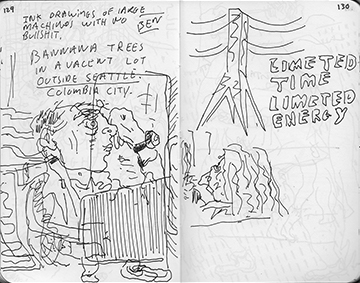 129
INK DRAWINGS OF LARGE
MACHINES WITH NO
BULLSHIT.
BEN
BANNANA TREES
IN A VACENT LOT
OUTSIDE SEATTLE.
COLOMBIA CITY.
130
LIMETED
TIME
LIMETED
ENERGY